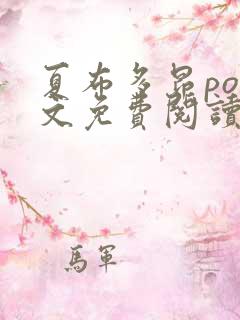 夏布多昂po
文免費閱讀
馬軍